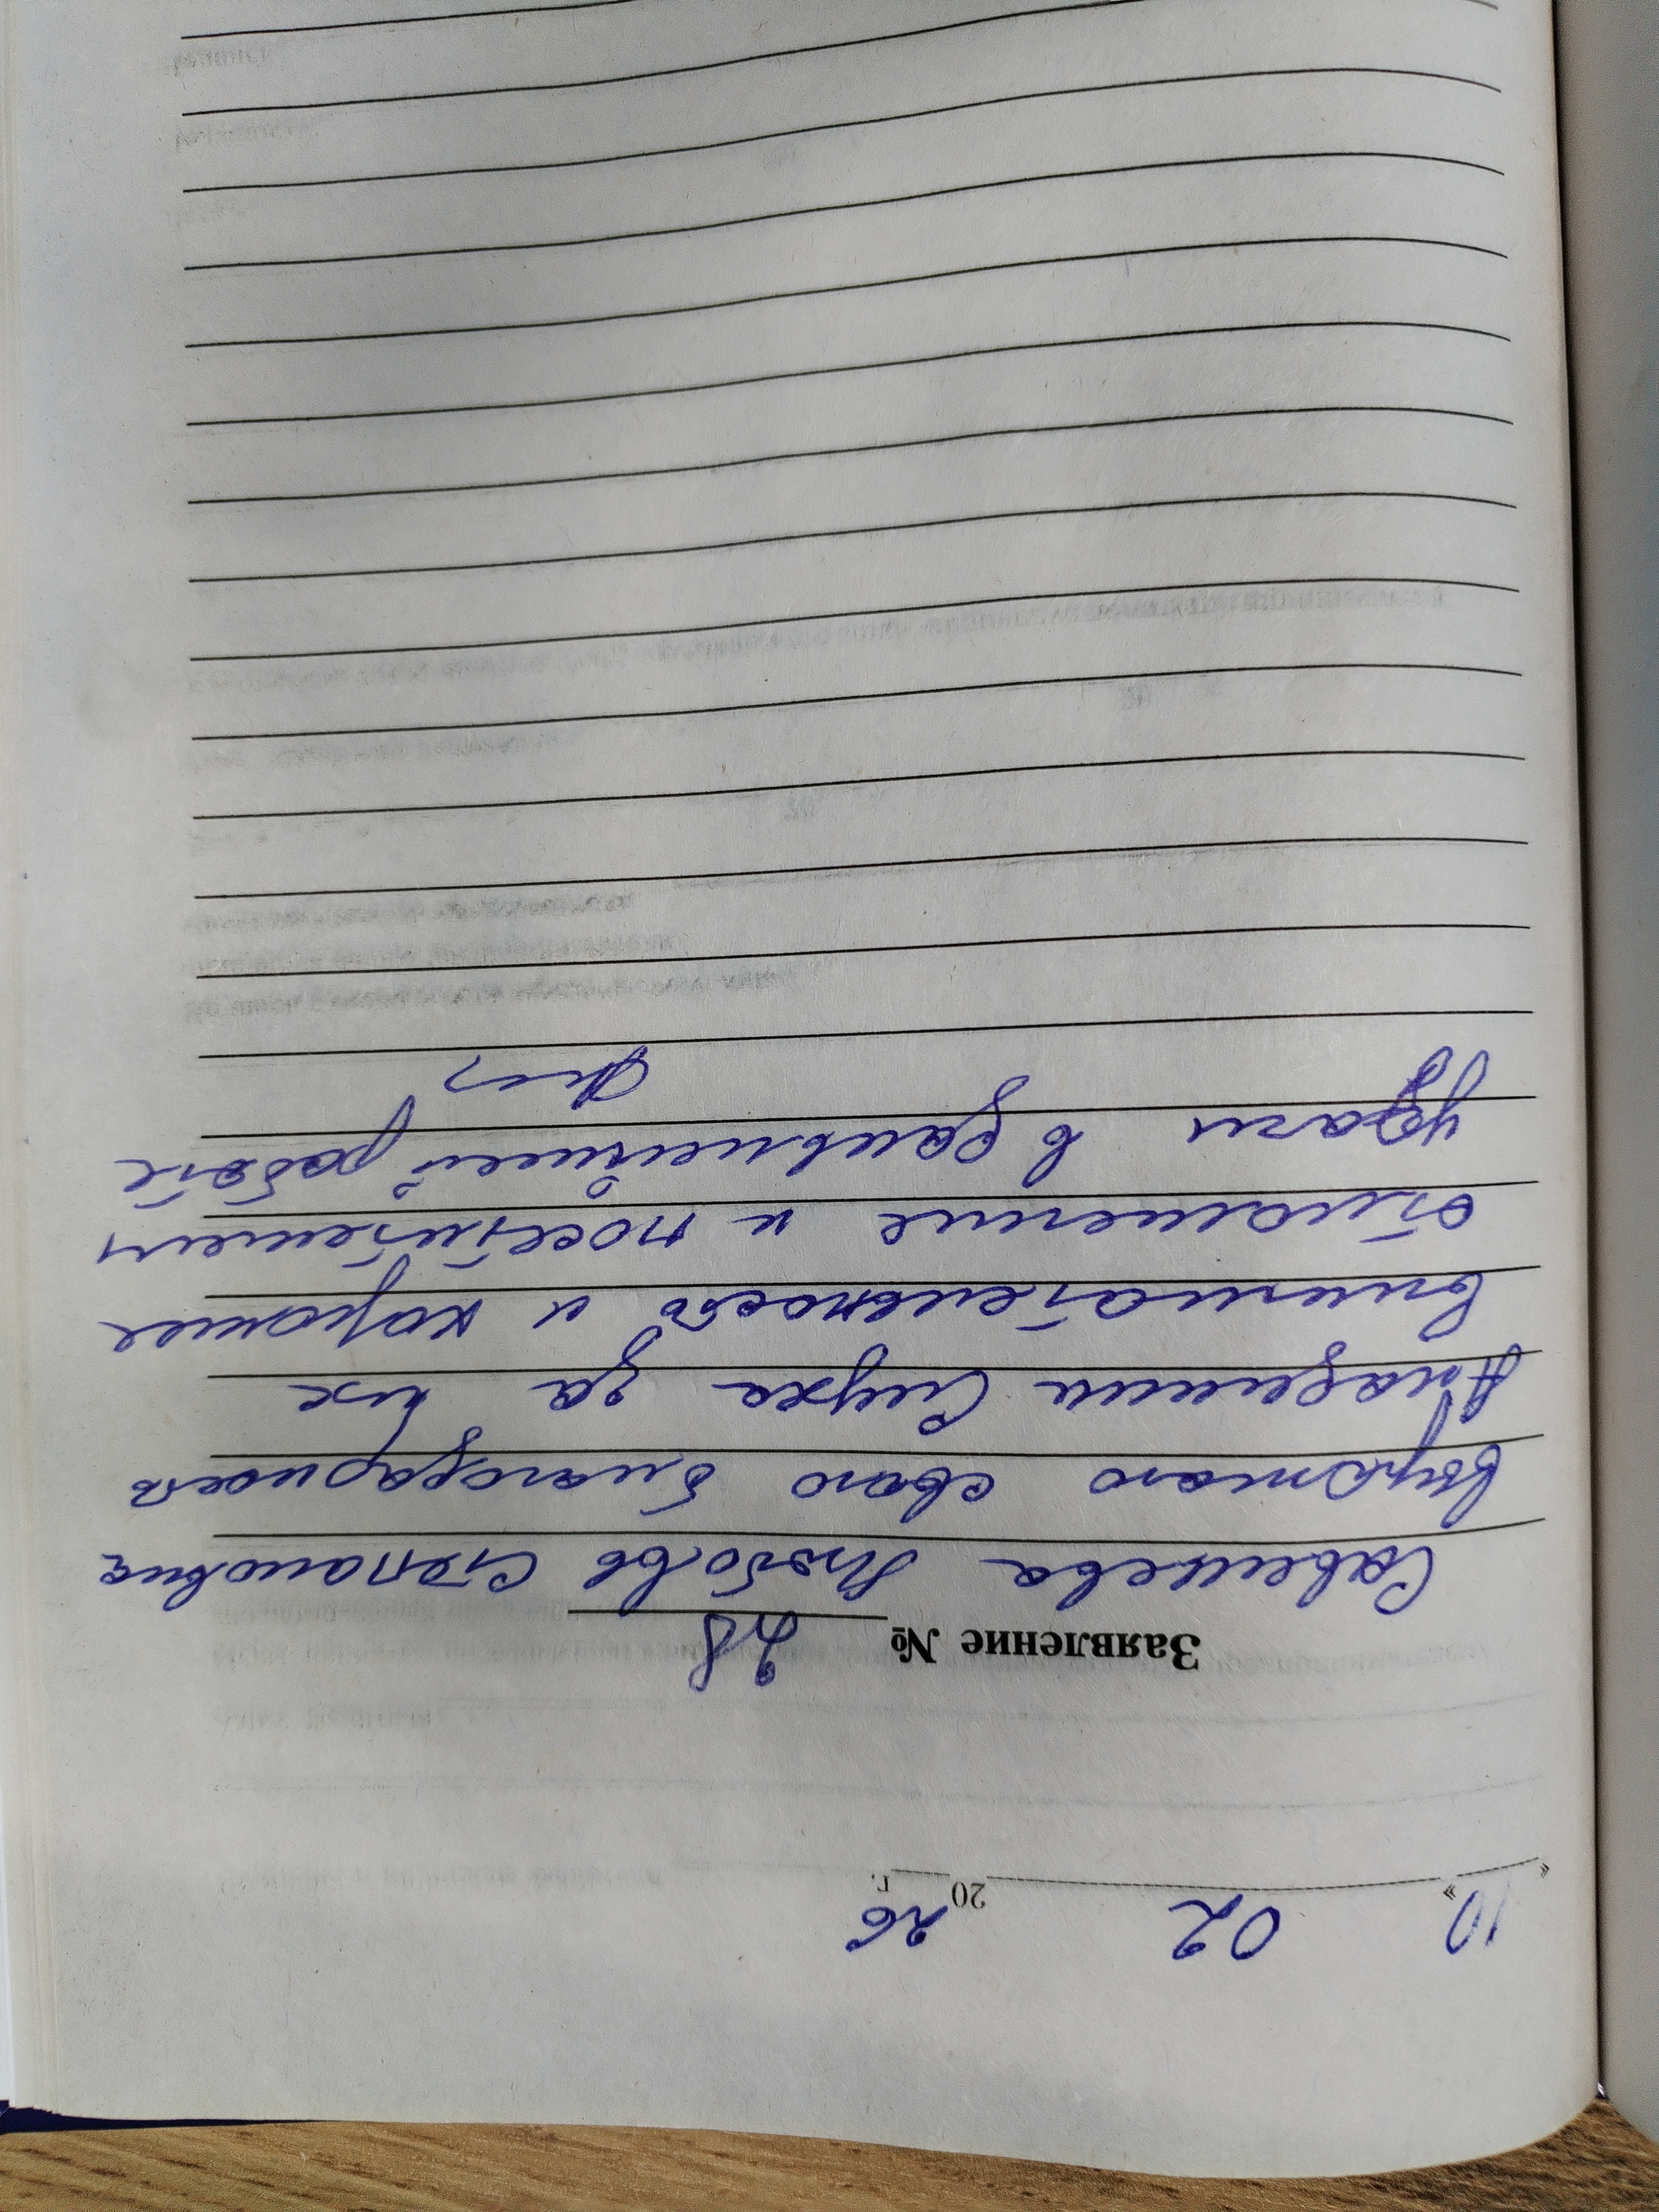 «10» 02 2026 г.
Заявление № 28
Савельева Любовь Степановна
выражаю свою благодарность
Академии Слуха за их
внимательность и хорошее
отношение и посетителям
удачи в дальнейшей работе